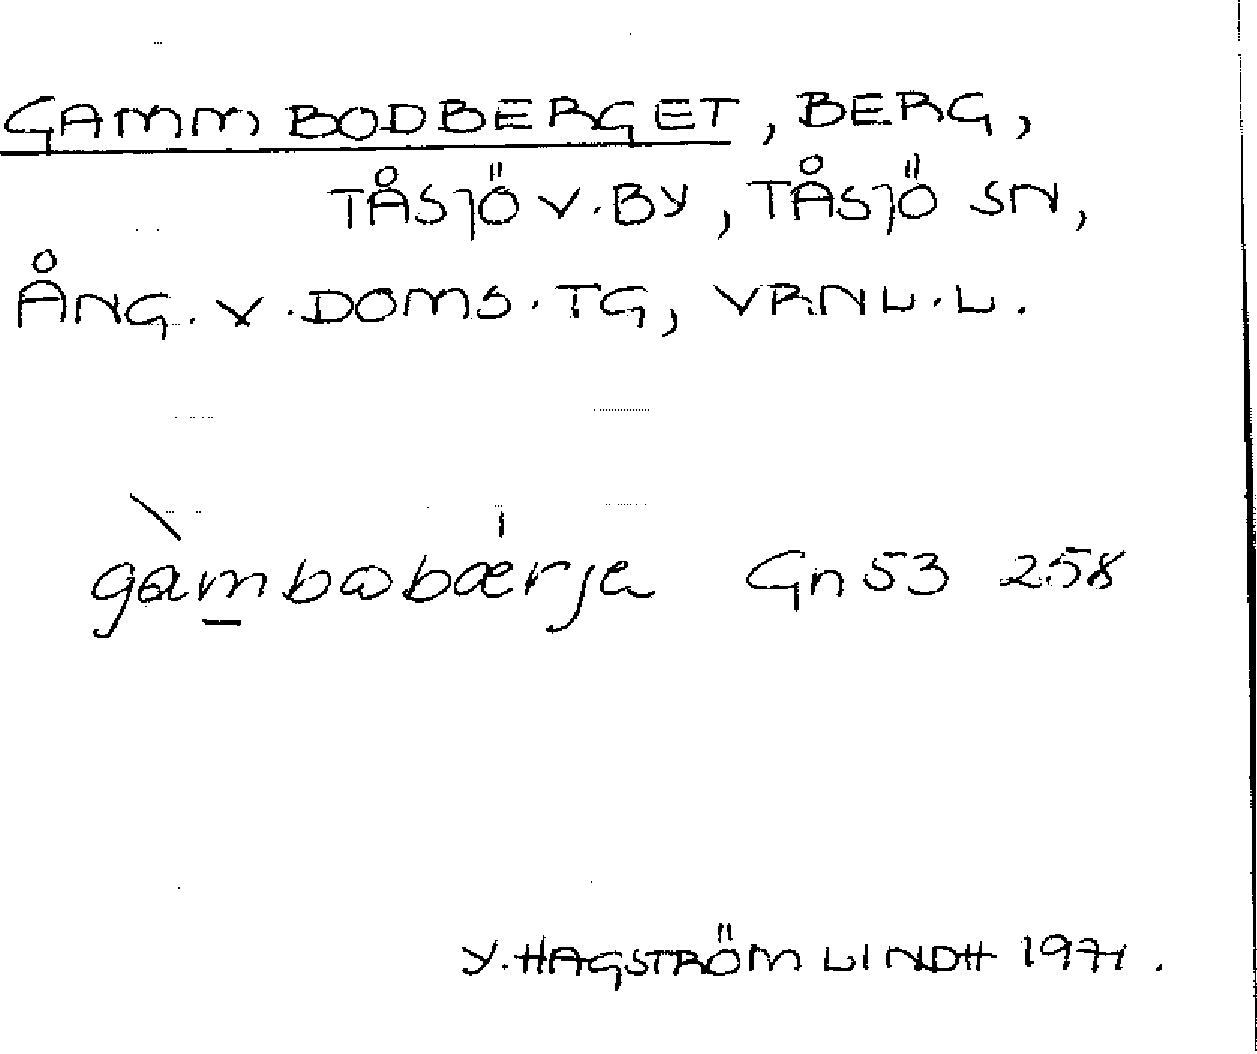 GAMMBODBERGET, BERG,
TÅSJÖ V. BY, TÅSJÖ SN,
ÅNG. V. DOMS. TG, VRNL. L.
gàmbobærja Gn 53 258
Y. HAGSTRÖM LINDH 1971.